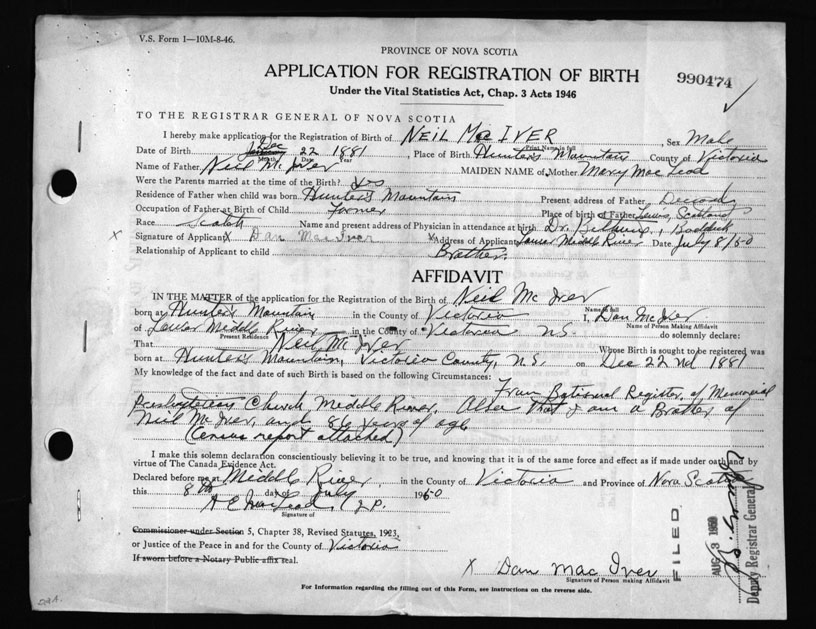 V.S. Form 1—10M-8-46.
PROVINCE OF NOVA SCOTIA
APPLICATION FOR REGISTRATION OF BIRTH
990474
Under the Vital Statistics Act, Chap. 3 Acts 1946
TO THE REGISTRAR GENERAL OF NOVA SCOTIA
I hereby make application for the Registration of Birth of NEIL Mac IVER, Sex Male
Print Name in full
Date of Birth Dec 22 1881, Place of Birth Hunter's Mountain County of Victoria
Month Date Year
Name of Father Neil Mc Iver MAIDEN NAME of Mother Mary Mac Leod
Were the Parents married at the time of the Birth? Yes
Residence of Father when child was born Hunter's Mountain Present address of Father
Occupation of Father at Birth of Child Farmer Place of birth of Father Lewis, Scotland
Race Scotch Name and present address of Physician in attendance at birth Dr. Baddeck
X Signature of Applicant X Dan Mac Iver X Address of Applicant Lower Middle River Date July 8/50
Relationship of Applicant to child Brother.
AFFIDAVIT
IN THE MATTER of the application for the Registration of the Birth of Neil Mc Iver
Name in full
born at Hunter's Mountain in the County of Victoria I, Dan Mc Iver
Name of Person Making Affidavit
of Lower Middle River in the County of Victoria N.S. do solemnly declare:
Present Residence
That Neil Mc Iver Whose Birth is sought to be registered was
born at Hunter's Mountain, Victoria County, N.S. on Dec 22nd 1881
My knowledge of the fact and date of such Birth is based on the following Circumstances:
From Register of Memorial
Presbyterian Church Middle River. Also that I am a Brother of
Neil Mc Iver, and 86 years of age
(Census report attached)
I make this solemn declaration conscientiously believing it to be true, and knowing that it is of the same force and effect as if made under oath and by
virtue of The Canada Evidence Act.
Declared before me at Middle River in the County of Victoria and Province of Nova Scotia
this 8th day of July 1950
A E MacLeod J.P.
Signature of
Commissioner under Section 5, Chapter 38, Revised Statutes, 1923,
or Justice of the Peace in and for the County of Victoria
If sworn before a Notary Public affix seal.
X Dan Mac Iver
Signature of Person making Affidavit
For Information regarding the filling out of this Form, see instructions on the reverse side.
FILED
AUG 3 1950
Deputy Registrar General